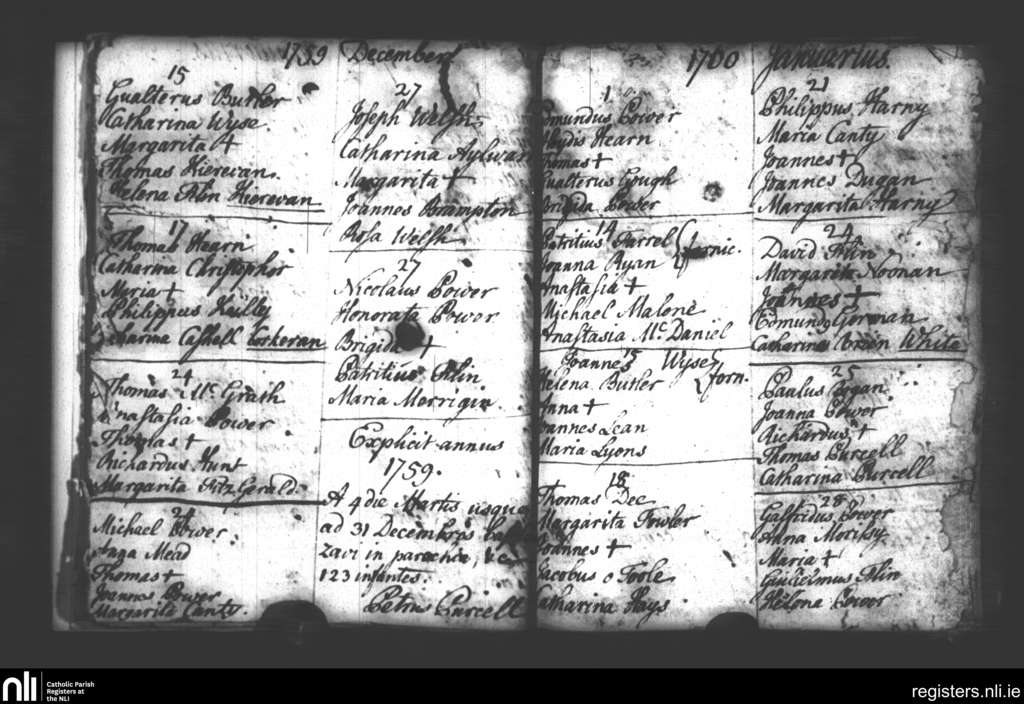 1759 December
15
Gualterus Butler
Catharina Wyse
Margarita +
Thomas Hierevan
Helena Flin Hierevan
17
Thomas Hearn
Catharina Christopher
Maria +
Philippus Keilly
Catharina Cashell Corkeran
24
Thomas Mc Grath
Anastasia Power
Thomas +
Richardus Hunt
Margarita Fitz Gerald
24
Michael Power
Anna Mead
Thomas +
Joannes Power
Margarita Canty
27
Joseph Welsh
Catharina Aylwar
Margarita +
Joannes Brampton
Rosa Welsh
27
Nicolaus Power
Honorata Power
Brigida +
Patritius Flin
Maria Morrigin
Explicit annus
1759.
A 4 die Martis usque
ad 31 Decembris
zavi in parochia,
123 infantes.
Petrus Purcell
1760 Januarius.
1
Edmundus Power
Hearn
Thomas +
Gualterus Gough
Brigida Power
14
Patritius Farrel
Joanna Ryan } fornic.
Anastasia +
Michael Malone
Anastasia Mc Daniel
15
Joannes Wyse
Helena Butler } forn.
Anna +
Joannes Lean
Maria Lyons
18
Thomas Dee
Margarita Fowler
Joannes +
Jacobus o Toole
Catharina Hays
21
Philippus Harny
Maria Canty
Joannes +
Joannes Dugan
Margarita Harny
24
David Flin
Margarita Noonan
Joannes +
Edmund Gorman
Catharina Green White
25
Paulus Bogan
Joanna Power
Richardus +
Thomas Purcell
Catharina Purcell
28
Galfridus Power
Anna Morissy
Maria +
Guilielmus Flin
Helena Power
nli
Catholic Parish
Registers at
the NLI
registers.nli.ie